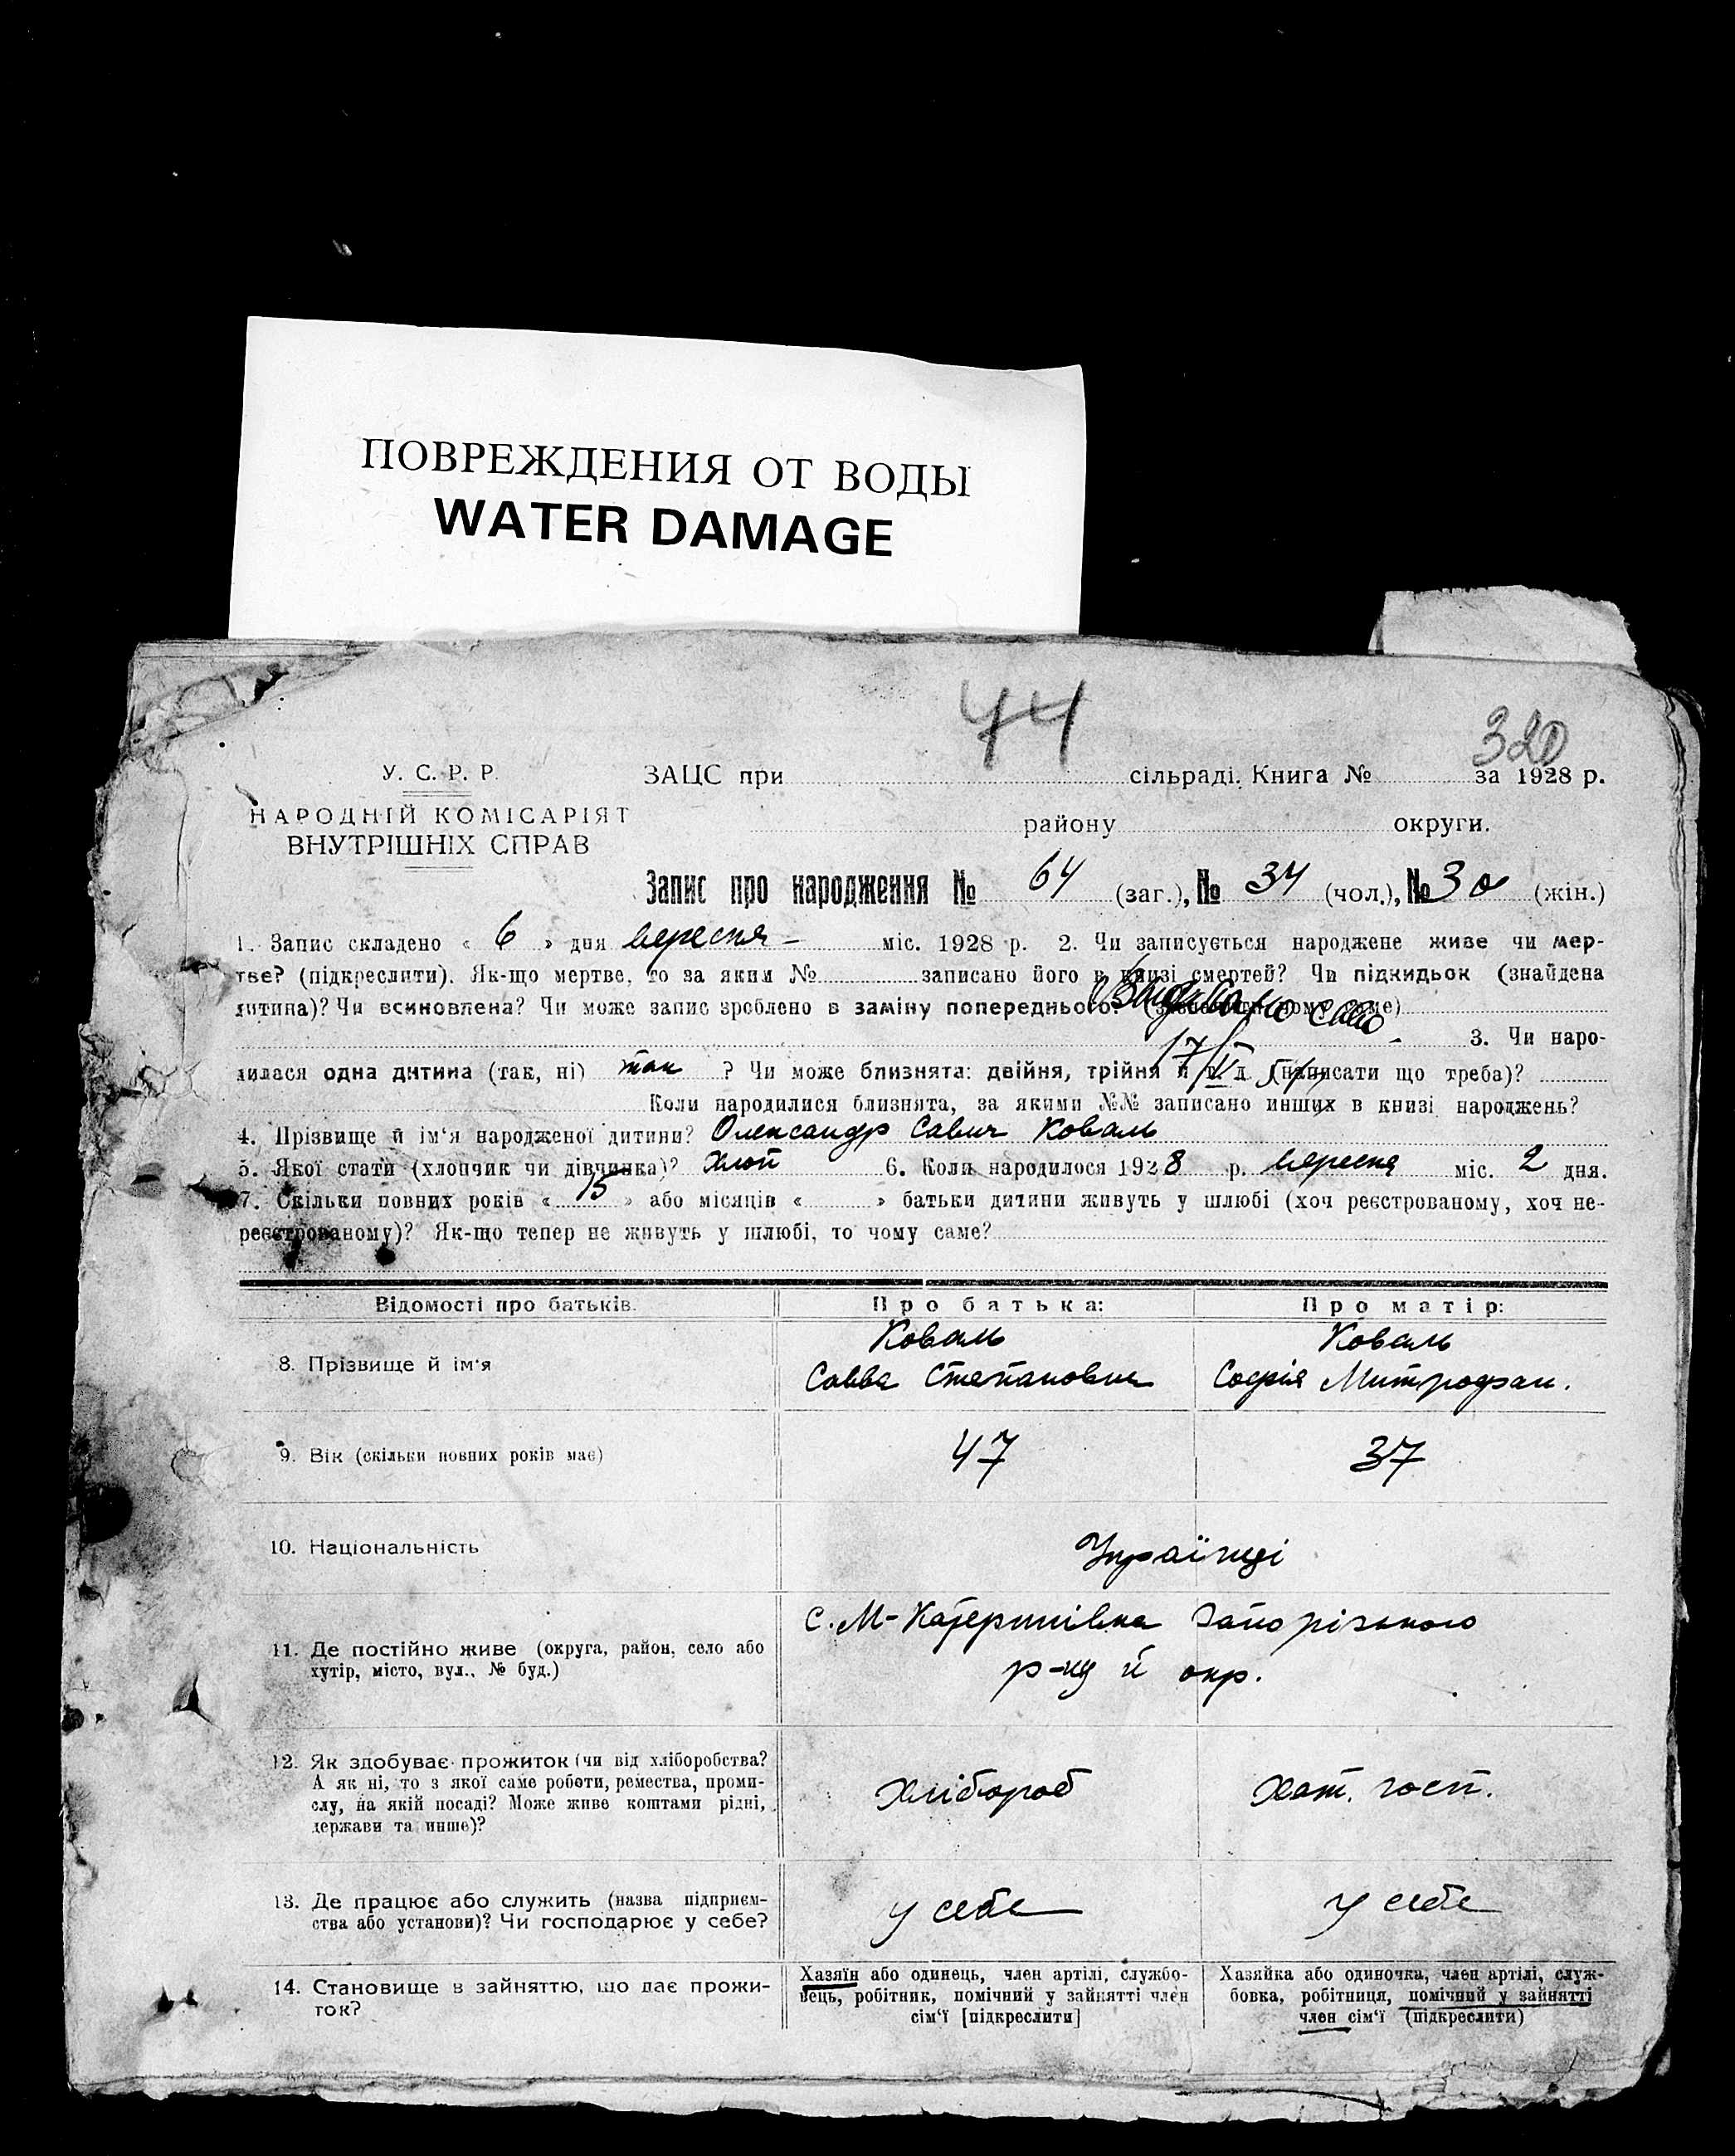 ПОВРЕЖДЕНИЯ ОТ ВОДЫ
WATER DAMAGE
44
320
У. С. Р. Р.
НАРОДНІЙ КОМІСАРІЯТ
ВНУТРІШНІХ СПРАВ
ЗАЦС при сільраді. Книга № за 1928 р.
району округи.
Запис про народження № 64 (заг.), № 34 (чол.), № 30 (жін.)
1. Запис складено « 6 » дня вересня - міс. 1928 р. 2. Чи записується народжене живе чи мер-
тве? (підкреслити). Як-що мертве, то за яким № записано його в книзі смертей? Чи підкидьок (знайдена
дитина)? Чи всиновлена? Чи може запис зроблено в заміну попереднього? чому саме)
3. Чи наро-
17/VI
дилася одна дитина (так, ні) так ? Чи може близнята: двійня, трійня й т. д. (написати що треба)?
Коли народилися близнята, за якими №№ записано инших в книзі народжень?
4. Прізвище й ім'я народженої дитини? Олександр Савич Коваль
5. Якої стати (хлопчик чи дівчинка)? Хлоп 6. Коли народилося 1928 р. вересня міс. 2 дня.
7. Скільки повних років « 15 » або місяців « » батьки дитини живуть у шлюбі (хоч реєстрованому, хоч не-
реєстрованому)? Як-що тепер не живуть у шлюбі, то чому саме?
Відомості про батьків. Про батька: Про матір:
8. Прізвище й ім'я
Коваль
Савва Степанович
Коваль
Софія Митрофан.
9. Вік (скільки повних років має) 47 37
10. Національність Українці
11. Де постійно живе (округа, район, село або
хутір, місто, вул., № буд.)
с. М-Катеринівка Запорізького
р-ну й окр.
12. Як здобуває прожиток (чи від хліборобства?
А як ні, то з якої саме роботи, ремества, проми-
слу, на якій посаді? Може живе коштами рідні,
держави та инше)?
Хлібороб
Хат. госп.
13. Де працює або служить (назва підприєм-
ства або установи)? Чи господарює у себе?
у себе
у себе
14. Становище в зайняттю, що дає прожи-
ток?
Хазяїн або одинець, член артілі, службо-
вець, робітник, помічний у зайнятті член
сім'ї [підкреслити]
Хазяйка або одиночка, член артілі, служ-
бовка, робітниця, помічний у зайнятті
член сім'ї (підкреслити)